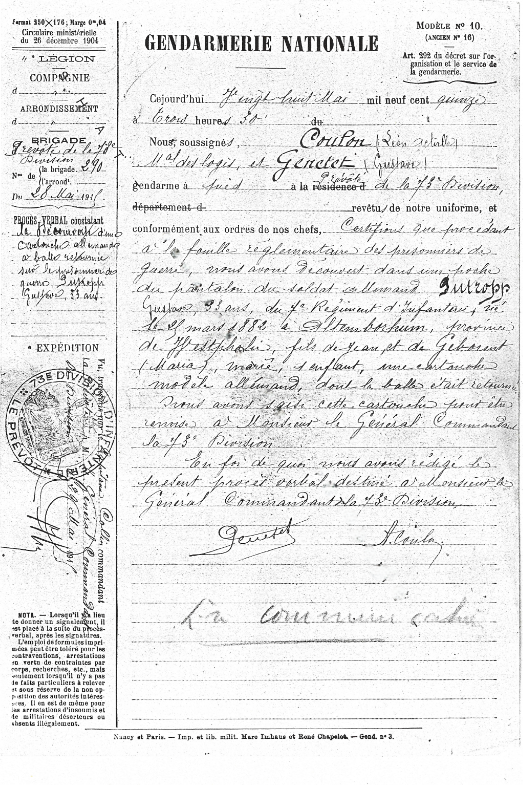 Format 250×176; Marge 0m,04
Circulaire ministérielle
du 26 décembre 1904
LÉGION
COMPAGNIE
d
ARRONDISSEMENT
d
BRIGADE
Prévôté de la 73e
Division
Nos de la brigade. 290
l'arrond.
Du 28 Mai 1915
PROCÈS-VERBAL constatant
la découverte d'une
cartouche allemande
à balle retournée
sur le prisonnier de
guerre Putropp
Gustave 33 ans.
EXPÉDITION
73E DIVISION D'INFANTERIE
LE PRÉVÔT
NOTA. — Lorsqu'il y a lieu
de donner un signalement, il
est placé à la suite du procès-
verbal, après les signatures.
L'emploi de formules impri-
mées peut être toléré pour les
contraventions, arrestations
en vertu de contraintes par
corps, recherches, etc., mais
seulement lorsqu'il n'y a pas
de faits particuliers à relever
et sous réserve de la non op-
position des autorités intéres-
sées. Il en est de même pour
les arrestations d'insoumis et
de militaires déserteurs ou
absents illégalement.
MODÈLE No 10.
(ANCIEN No 16)
Art. 292 du décret sur l'or-
ganisation et le service de
la gendarmerie.
GENDARMERIE NATIONALE
Cejourd'hui Vingt-huit Mai mil neuf cent quinze
à Trois heures 30 du
Nous, soussignés Coulon
Mal des logis, et Genetet (Gustave)
gendarme à pied à la résidence d Prévôté de la 73e Division,
département d revêtu de notre uniforme, et
conformément aux ordres de nos chefs, Certifions que procédant
à la fouille réglementaire des prisonniers de
guerre, nous avons découvert dans une poche
du pantalon du soldat allemand Putropp
Gustave, 33 ans, du 7e Régiment d'Infanterie, né
le mars 1882 à Altenbochum, province
de Westphalie, fils de Jean et de Geborent
(Maria), marié, 1 enfant, une cartouche
modèle allemand, dont la balle était retournée
Nous avons saisi cette cartouche pour être
remise à Monsieur le Général Commandant
la 73e Division
En foi de quoi nous avons rédigé le
présent procès verbal destiné à Monsieur le
Général Commandant la 73e Division.
Genetet A. Coulon
Nancy et Paris. — Imp. et lib. milit. Marc Imhaus et René Chapelot. — Gend. no 3.